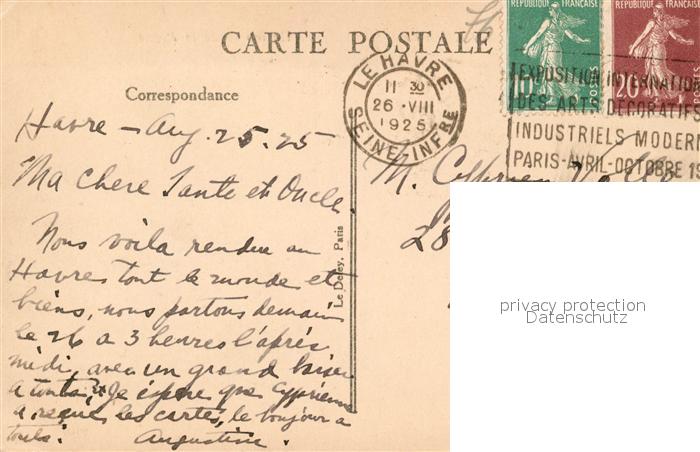 CARTE POSTALE
RÉPUBLIQUE FRANÇAISE
10c POSTES
RÉPUBLIQUE FRANÇAISE
20c POSTES
LE HAVRE
11 30
26 · VIII
1925
SEINE-INFRE
EXPOSITION INTERNATION
DES ARTS DÉCORATIFS
INDUSTRIELS MODERN
PARIS-AVRIL-OCTOBRE 19
Correspondance
Havre – Aug. 25. 25
Ma chere Tante et Oncle
Nous voila rendue au
Havres tout le monde ete
biens, nous partons demain
le 26 a 3 heures l'après
midi, avec un grand baiser
a toutes, Je éspère que Cyprienne
a reçue les cartes, le bonjour a
touts.
Augustine.
Le Deley, Paris
M.
28
privacy protection
Datenschutz